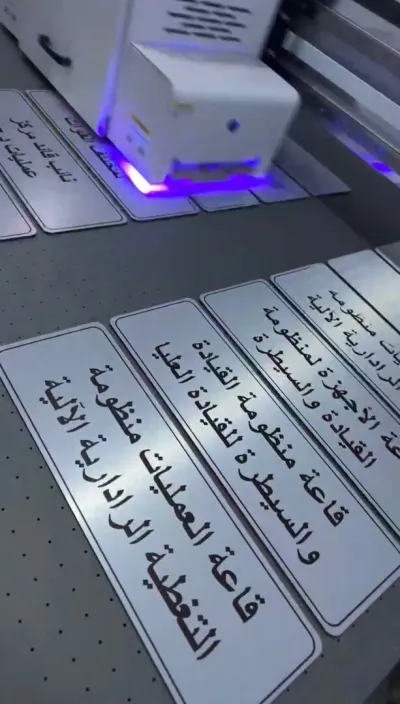 قاعة العمليات منظومة
التغطية الرادارية الآلية
قاعة منظومة القيادة
والسيطرة للقيادة العليا
الأجهزة لمنظومة
القيادة والسيطرة
منظومة
الرادارية الآلية
نائب قائد مركز
عمليات